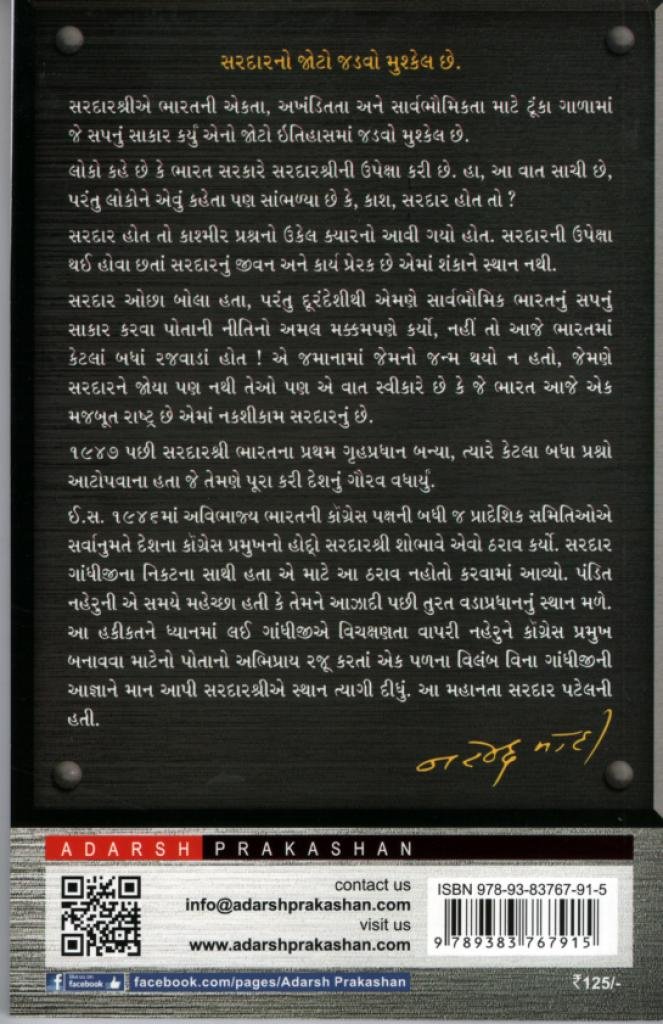 સરદારનો જોટો જડવો મુશ્કેલ છે.
સરદારશ્રીએ ભારતની એકતા, અખંડિતતા અને સાર્વભૌમિકતા માટે ટૂંકા ગાળામાં
જે સપનું સાકાર કર્યું એનો જોટો ઇતિહાસમાં જડવો મુશ્કેલ છે.
લોકો કહે છે કે ભારત સરકારે સરદારશ્રીની ઉપેક્ષા કરી છે. હા, આ વાત સાચી છે,
પરંતુ લોકોને એવું કહેતા પણ સાંભળ્યા છે કે, કાશ, સરદાર હોત તો ?
સરદાર હોત તો કાશ્મીર પ્રશ્નનો ઉકેલ ક્યારનો આવી ગયો હોત. સરદારની ઉપેક્ષા
થઈ હોવા છતાં સરદારનું જીવન અને કાર્ય પ્રેરક છે એમાં શંકાને સ્થાન નથી.
સરદાર ઓછા બોલા હતા, પરંતુ દૂરંદેશીથી એમણે સાર્વભૌમિક ભારતનું સપનું
સાકાર કરવા પોતાની નીતિનો અમલ મક્કમપણે કર્યો, નહીં તો આજે ભારતમાં
કેટલાં બધાં રજવાડાં હોત ! એ જમાનામાં જેમનો જન્મ થયો ન હતો, જેમણે
સરદારને જોયા પણ નથી તેઓ પણ એ વાત સ્વીકારે છે કે જે ભારત આજે એક
મજબૂત રાષ્ટ્ર છે એમાં નકશીકામ સરદારનું છે.
૧૯૪૭ પછી સરદારશ્રી ભારતના પ્રથમ ગૃહપ્રધાન બન્યા, ત્યારે કેટલા બધા પ્રશ્નો
આટોપવાના હતા જે તેમણે પૂરા કરી દેશનું ગૌરવ વધાર્યું.
ઈ.સ. ૧૯૪૬માં અવિભાજ્ય ભારતની કૉંગ્રેસ પક્ષની બધી જ પ્રાદેશિક સમિતિઓએ
સર્વાનુમતે દેશના કૉંગ્રેસ પ્રમુખનો હોદ્દો સરદારશ્રી શોભાવે એવો ઠરાવ કર્યો. સરદાર
ગાંધીજીના નિકટના સાથી હતા એ માટે આ ઠરાવ નહોતો કરવામાં આવ્યો. પંડિત
નહેરુની એ સમયે મહેચ્છા હતી કે તેમને આઝાદી પછી તુરત વડાપ્રધાનનું સ્થાન મળે.
આ હકીકતને ધ્યાનમાં લઈ ગાંધીજીએ વિચક્ષણતા વાપરી નહેરુને કૉંગ્રેસ પ્રમુખ
બનાવવા માટેનો પોતાનો અભિપ્રાય રજૂ કરતાં એક પળના વિલંબ વિના ગાંધીજીની
આજ્ઞાને માન આપી સરદારશ્રીએ સ્થાન ત્યાગી દીધું. આ મહાનતા સરદાર પટેલની
હતી.
નરેન્દ્ર મોદી
ADARSH PRAKASHAN
contact us
info@adarshprakashan.com
visit us
www.adarshprakashan.com
ISBN 978-93-83767-91-5
9 789383 767915
f facebook
facebook.com/pages/Adarsh Prakashan
₹125/-